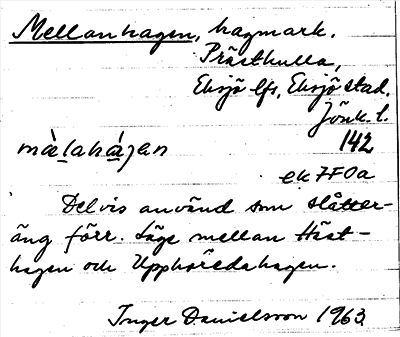 Mellanhagen, hagmark.
Prästkulla,
Eksjö lfs, Eksjö stad.
Jönk. l.
142
mà̱laháǥan
ek 7F0a
Delvis använd som slåtter-
äng förr. Läge mellan Häst-
hagen och Upphöjdahagen.
Inger Danielsson 1963